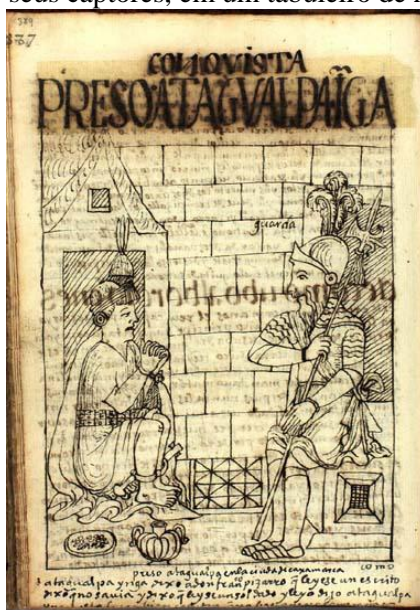 seus captores, em um tabuleiro de
389
387
CONQVISTA
PRESO ATAGVALPA IŨGA
guarda
preso atagualpa en la ciudad de caxamarca como
atagualpa ynga dixo a don franco pizarro q̃ leyese un escrito
dixo q̃ no savia y dixo q̃ leyese un soldado y leyo dijo atagualpa